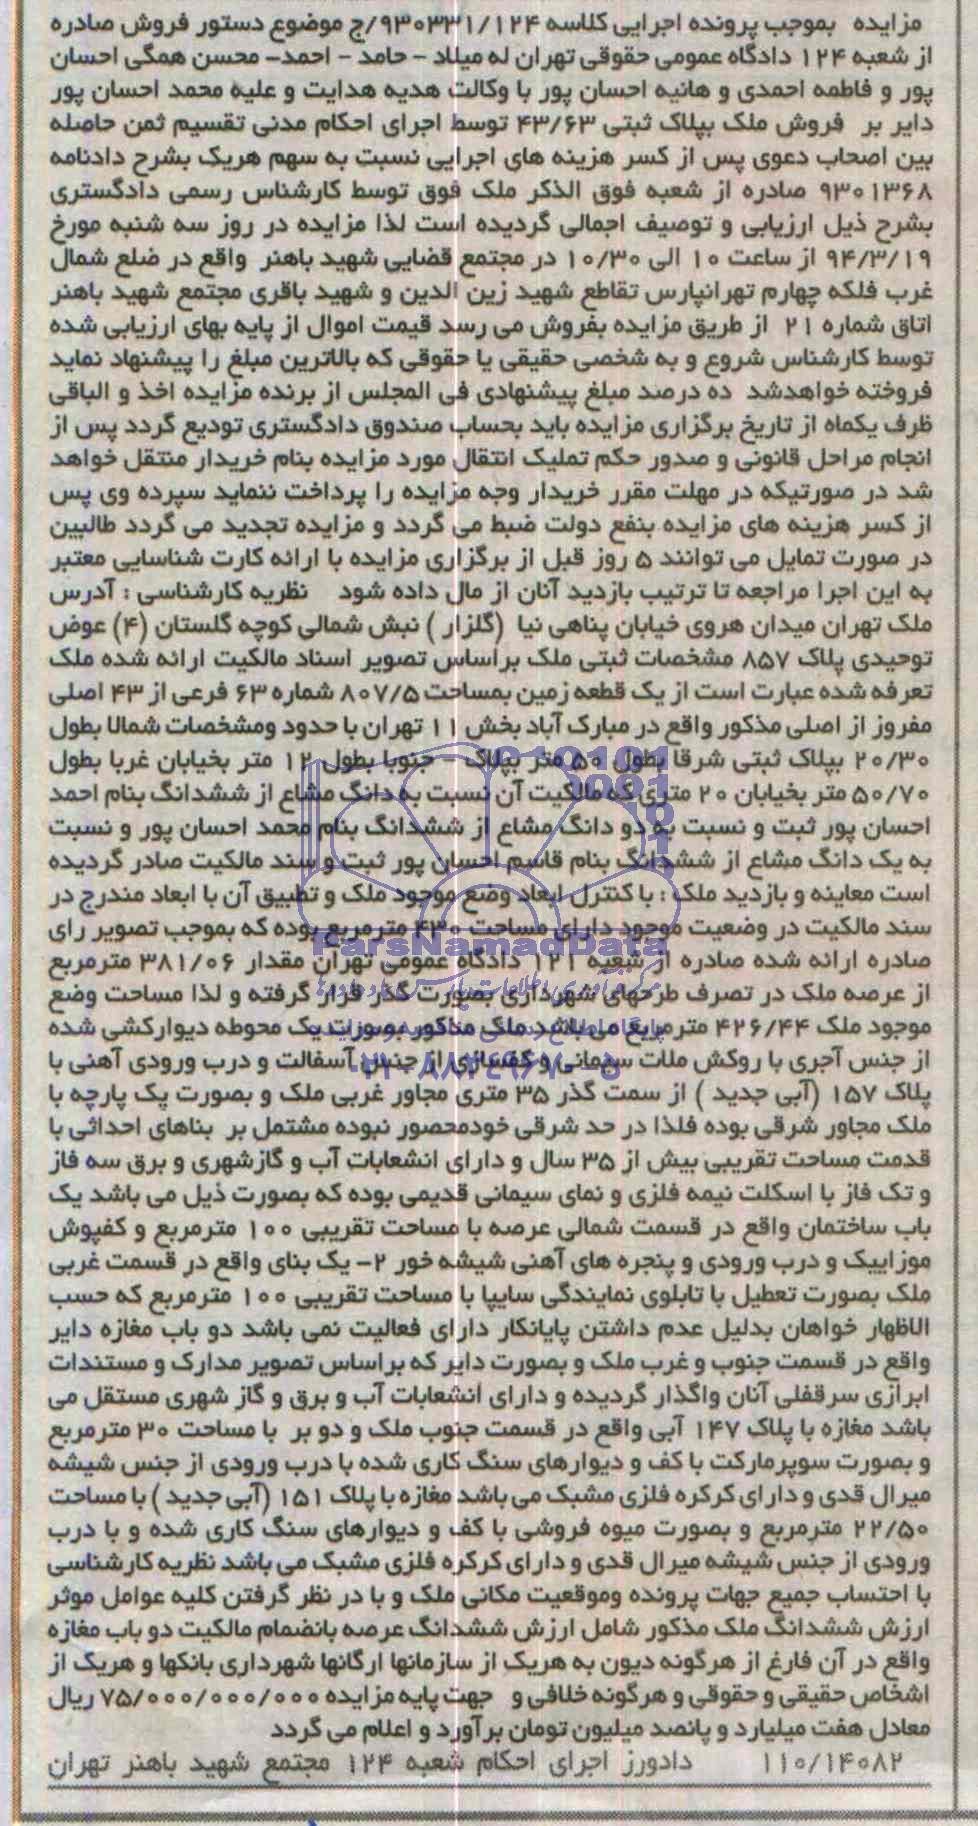 مزایده بموجب پرونده اجرایی کلاسه ۹۳۰۳۳۱/۱۲۴/ج موضوع دستور فروش صادره
از شعبه ۱۲۴ دادگاه عمومی حقوقی تهران له میلاد - حامد - احمد- محسن همگی احسان
پور و فاطمه احمدی و هانیه احسان پور با وکالت هدیه هدایت و علیه محمد احسان پور
دایر بر فروش ملک بپلاک ثبتی ۴۳/۶۳ توسط اجرای احکام مدنی تقسیم ثمن حاصله
بین اصحاب دعوی پس از کسر هزینه های اجرایی نسبت به سهم هریک بشرح دادنامه
۹۳۰۱۳۶۸ صادره از شعبه فوق الذکر ملک فوق توسط کارشناس رسمی دادگستری
بشرح ذیل ارزیابی و توصیف اجمالی گردیده است لذا مزایده در روز سه شنبه مورخ
۹۴/۳/۱۹ از ساعت ۱۰ الی ۱۰/۳۰ در مجتمع قضایی شهید باهنر واقع در ضلع شمال
غرب فلکه چهارم تهرانپارس تقاطع شهید زین الدین و شهید باقری مجتمع شهید باهنر
اتاق شماره ۲۱ از طریق مزایده بفروش می رسد قیمت اموال از پایه بهای ارزیابی شده
توسط کارشناس شروع و به شخصی حقیقی یا حقوقی که بالاترین مبلغ را پیشنهاد نماید
فروخته خواهدشد ده درصد مبلغ پیشنهادی فی المجلس از برنده مزایده اخذ و الباقی
ظرف یکماه از تاریخ برگزاری مزایده باید بحساب صندوق دادگستری تودیع گردد پس از
انجام مراحل قانونی و صدور حکم تملیک انتقال مورد مزایده بنام خریدار منتقل خواهد
شد در صورتیکه در مهلت مقرر خریدار وجه مزایده را پرداخت ننماید سپرده وی پس
از کسر هزینه های مزایده بنفع دولت ضبط می گردد و مزایده تجدید می گردد طالبین
در صورت تمایل می توانند ۵ روز قبل از برگزاری مزایده با ارائه کارت شناسایی معتبر
به این اجرا مراجعه تا ترتیب بازدید آنان از مال داده شود نظریه کارشناسی : آدرس
ملک تهران میدان هروی خیابان پناهی نیا (گلزار) نبش شمالی کوچه گلستان (۴) عوض
توحیدی پلاک ۸۵۷ مشخصات ثبتی ملک براساس تصویر اسناد مالکیت ارائه شده ملک
تعرفه شده عبارت است از یک قطعه زمین بمساحت ۸۰۷/۵ شماره ۶۳ فرعی از ۴۳ اصلی
مفروز از اصلی مذکور واقع در مبارک آباد بخش ۱۱ تهران با حدود ومشخصات شمالا بطول
۲۰/۳۰ بپلاک ثبتی شرقا بطول ۵۰ متر بپلاک - جنوبا بطول ۱۲ متر بخیابان غربا بطول
۵۰/۷۰ متر بخیابان ۲۰ متری که مالکیت آن نسبت به دانگ مشاع از ششدانگ بنام احمد
احسان پور ثبت و نسبت به دو دانگ مشاع از ششدانگ بنام محمد احسان پور و نسبت
به یک دانگ مشاع از ششدانگ بنام قاسم احسان پور ثبت و سند مالکیت صادر گردیده
است معاینه و بازدید ملک : با کنترل ابعاد وضع موجود ملک و تطبیق آن با ابعاد مندرج در
سند مالکیت در وضعیت موجود دارای مساحت ۴۳۰ مترمربع بوده که بموجب تصویر رای
صادره ارائه شده صادره از شعبه ۱۲۱ دادگاه عمومی تهران مقدار ۳۸۱/۰۶ مترمربع
از عرصه ملک در تصرف طرحهای شهرداری بصورت گذر قرار گرفته و لذا مساحت وضع
موجود ملک ۴۲۶/۴۴ مترمربع می باشد ملک مذکور بصورت یک محوطه دیوارکشی شده
از جنس آجری با روکش ملات سیمانی و کفسازی از جنس آسفالت و درب ورودی آهنی با
پلاک ۱۵۷ (آبی جدید) از سمت گذر ۳۵ متری مجاور غربی ملک و بصورت یک پارچه با
ملک مجاور شرقی بوده فلذا در حد شرقی خودمحصور نبوده مشتمل بر بناهای احداثی با
قدمت مساحت تقریبی بیش از ۳۵ سال و دارای انشعابات آب و گازشهری و برق سه فاز
و تک فاز با اسکلت نیمه فلزی و نمای سیمانی قدیمی بوده که بصورت ذیل می باشد یک
باب ساختمان واقع در قسمت شمالی عرصه با مساحت تقریبی ۱۰۰ مترمربع و کفپوش
موزاییک و درب ورودی و پنجره های آهنی شیشه خور ۲- یک بنای واقع در قسمت غربی
ملک بصورت تعطیل با تابلوی نمایندگی سایپا با مساحت تقریبی ۱۰۰ مترمربع که حسب
الاظهار خواهان بدلیل عدم داشتن پایانکار دارای فعالیت نمی باشد دو باب مغازه دایر
واقع در قسمت جنوب و غرب ملک و بصورت دایر که براساس تصویر مدارک و مستندات
ابرازی سرقفلی آنان واگذار گردیده و دارای انشعابات آب و برق و گاز شهری مستقل می
باشد مغازه با پلاک ۱۴۷ آبی واقع در قسمت جنوب ملک و دو بر با مساحت ۳۰ مترمربع
و بصورت سوپرمارکت با کف و دیوارهای سنگ کاری شده با درب ورودی از جنس شیشه
میرال قدی و دارای کرکره فلزی مشبک می باشد مغازه با پلاک ۱۵۱ (آبی جدید) با مساحت
۲۲/۵۰ مترمربع و بصورت میوه فروشی با کف و دیوارهای سنگ کاری شده و با درب
ورودی از جنس شیشه میرال قدی و دارای کرکره فلزی مشبک می باشد نظریه کارشناسی
با احتساب جمیع جهات پرونده وموقعیت مکانی ملک و با در نظر گرفتن کلیه عوامل موثر
ارزش ششدانگ ملک مذکور شامل ارزش ششدانگ عرصه بانضمام مالکیت دو باب مغازه
واقع در آن فارغ از هرگونه دیون به هریک از سازمانها ارگانها شهرداری بانکها و هریک از
اشخاص حقیقی و حقوقی و هرگونه خلافی و جهت پایه مزایده ۷۵/۰۰۰/۰۰۰/۰۰۰ ریال
معادل هفت میلیارد و پانصد میلیون تومان برآورد و اعلام می گردد
۱۱۰/۱۴۰۸۲ دادورز اجرای احکام شعبه ۱۲۴ مجتمع شهید باهنر تهران
ParsNamadData